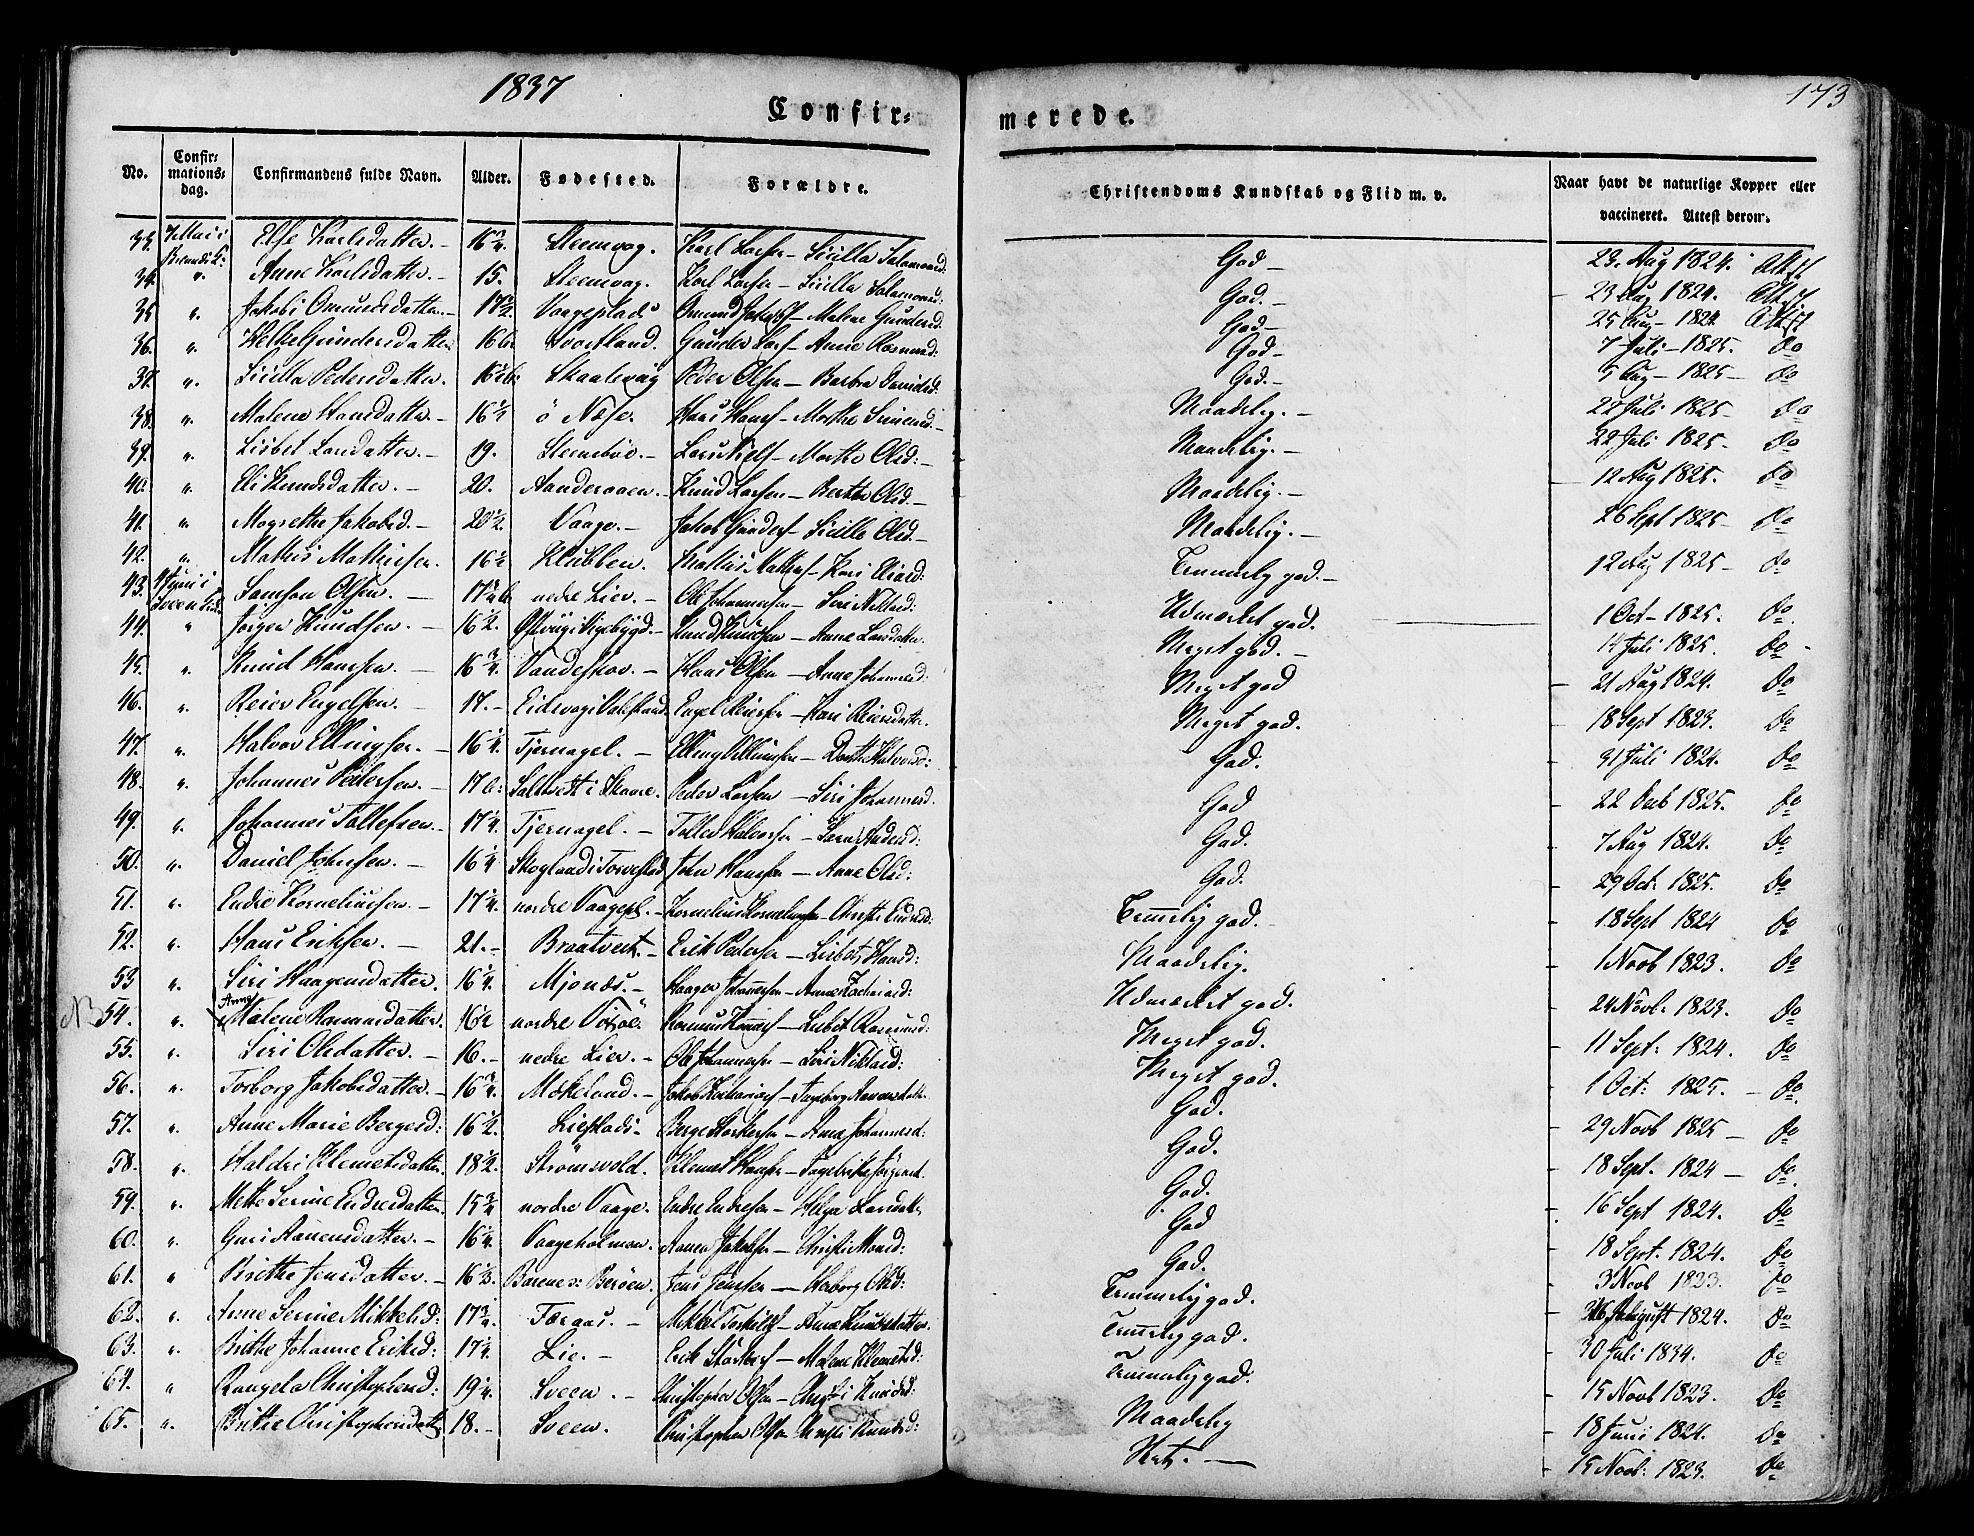 1837
173
Confir-
merede.
No.
Confir-
mations-
dag.
Confirmandens fulde Navn.
Alder.
Fødested.
Forældre.
Christendoms Kundskab og Flid m. v.
Naar havt de naturlige Kopper eller
vaccineret. Attest derom.
33. 7 Mai i Else Karlsdatter. 16 3/4. Steensvag. Karl Larsen - Sicilla Salamonsd: God 23. Aug 1824. Attest
34. Anne Karlsdatter. 15. Steensvag. Karl Larsen - Sicilla Salamonsd: God. 23 Aug 1824. Attest
35. " Jakobi Omundsdatter. 17 1/2. Vaageplads Omund Jakobs - Malene Gundersd. God 25 Aug 1824 Attest
36. " Helke Gundersdatter 16 Svortland. Gunder Lars - Anne Rasmusd: God 7 Juli 1825. do
37. " Sicilla Pedersdatter. 16 Skaalevag Peder Olsen - Barbra Davidsd: God. 5 Aug 1825 do
38. " Malene Hansdatter 16 1/4 ö Næse. Hans Hans - Marthe Simensd. Maadelig. 22 Juli 1825 do
39. " Lisbet Larsdatter. 19. Steensböe. Lars Niels - Marthe Olsd: Maadelig. 22 Juli 1825. do
40. " Eli Knudsdatter. 20. Knud Larsen - Berthe Olsd. Maadelig. 12 Aug 1825. do
41. " Magrethe Jakobsd. 20 1/2. Vaage. Jakob Gunders - Sicille Olsd. Maadelig. 26 Sept 1825 do
42. " Mathis Mathiesen. 16 1/2 Klubben. Mathis Mathies - Kari Temmelig god. 12 Aug 1825 do
43. 4 Juni i Samson Olsen. 17 nedre Lier. Ole Johannessen - Siri Nielsd: Udmærket god. 1 Oct 1825. do
44. " Jörgen Knudsen. 16 1/2. Knud Knudsen - Anne Larsdatter. Meget god. 14 Juli 1825. do
45. " Knud Hansen. 16 3/4. Vandeskov. Hans Olsen - Anne Johannesd: Meget god 21 Aug 1824. do
46. " Reier Engelsen. 17. Eidsvag i Engel Reiersen - Kari Reiersdatter. Meget god. 18 Sept 1823. do
47. " Halvor Ellingsen. 16 1/4. Tjernagel. Elling - Dorthe Halvorsd: God. 31 Juli 1824. do
48. " Johannes Pedersen. 17 Skaare. Peder Larsen - Siri Johannesd. God 22 1825. do
49. " Johannes Tollefsen. 17 1/4. Tjernagel. Tollef Halvorsen - God. 7 Aug 1824. do
50. " Daniel Johnsen. 16 1/4 Skogland i Torvestad John Hansen - Anne Olsd: God. 29 Oct 1825. do
51. " Endre Korneliusen. 17 1/4. nordre Vaagepl. Kornelius Korneliusen - Temmelig god. 18 Sept 1824 do
52. " Hans Eriksen. 21. Braatveit. Erik Pedersen - Lisbet Hansd: Maadelig. 1 Novb 1823. do
53 " Siri Haagensdatter. 16 1/4. Mjonæs. Haagen Johannessen - Anne Zachariasd: Udmærket god. 24 Novb: 1823. do
NB 54. " Anne Malene Rasmusdatter. 16 1/2 nordre Rasmus - Lisbet Rasmusd: Meget god. 11 Sept: 1824. do
55. " Siri Olsdatter. 16. nedre Lier. Ole Johannessen - Siri Nielsd: Meget god. 1 Oct: 1825. do
56. " Torborg Jakobsdatter. 16 3/4. Mækeland. Jakob Zacharias - Ingeborg God. 29 Novb 1825 do
57. " Anne Marie Bergesd: 16 1/2. Liestads Berge Størkersen - Anne Johannesd: God. 18 Sept. 1824 do
58. " Haldri Klemetsdatter. 18 1/2. Strömsvold. Klemet Hansen - God. 16 Sept 1824. do
59. " Mette Serine Endresdatter. 15 3/4 nordre Vaage. Endre Endresen - Helga Larsdatt. God 18 Sept. 1824. do
60. " Guri Aanensdatter. 16 1/4. Vaageholmen. Aanen Jakobsen - Christi Monsd: God. 3 Novb 1823. do
61. " Brithe Jensdatter. 16 1/3. Jens Jensen - Herborg Olsd: Temmelig god. 26 August 1824. do
62. " Anne Serine Mikkelsd: 17 3/4. Færaas. Mikkel Torkils - Anne Knudsdatter. Temmelig god. 30 Juli 1834. do
63. " Brithe Johanne Eriksd: 17 1/4. Lie. Erik Størkers - Malene Klemetsd: Temmelig god. 15 Novb 1823. do
64. " Rangela Christophersd: 19 1/4. Sveen. Christopher Olsen - Christi Knudsd: Maadelig 18 Juni 1824. do
65. " Brithe Christophersdatt. 18. Sveen. Christopher Olsen Christi Knudsd: Slet. 15 Novb: 1823. do